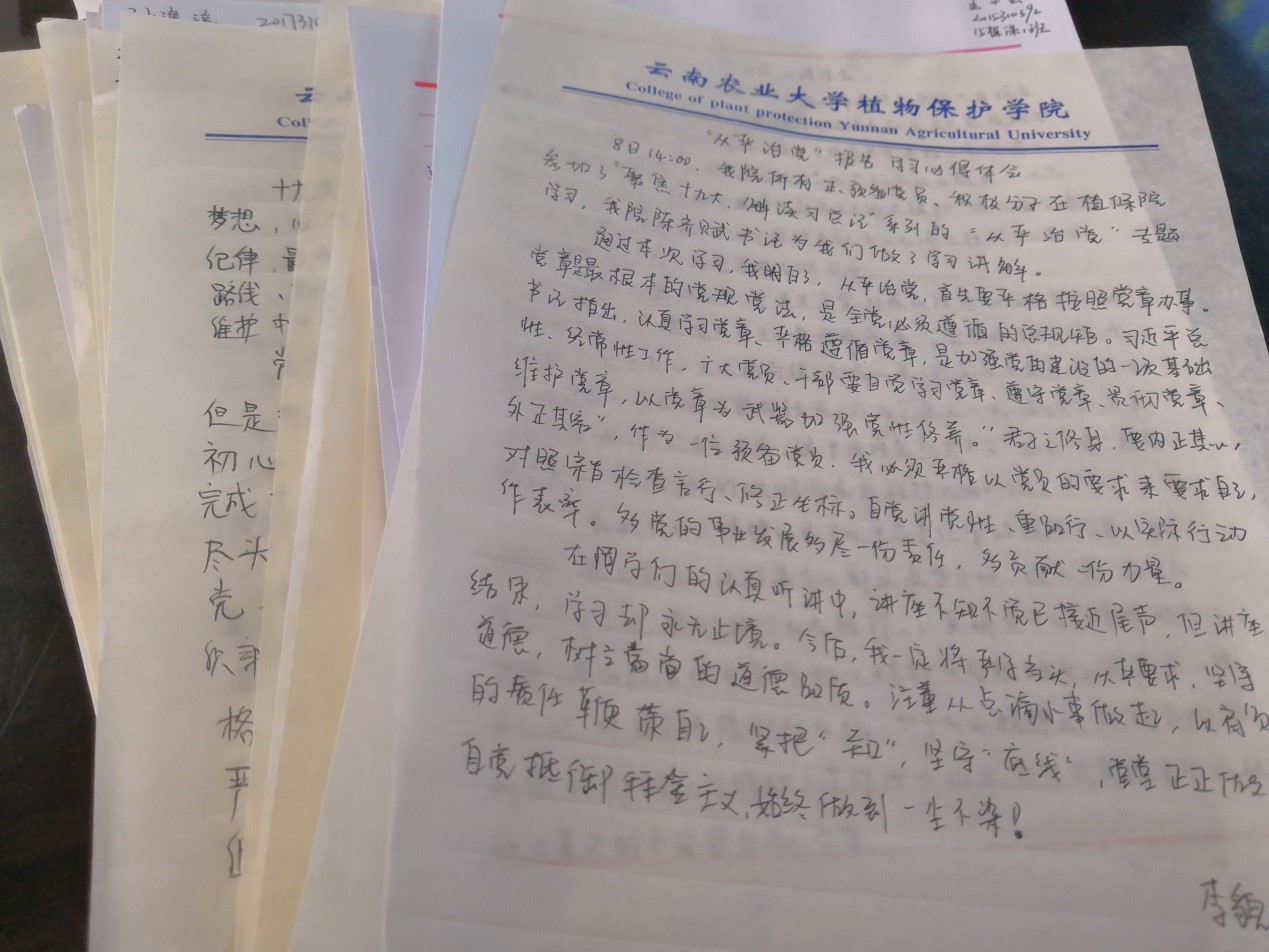 2017310
2015310692
15植保1班
云南农业大学植物保护学院
College of plant protection Yunnan Agricultural University
"从严治党"报告 学习心得体会
8日14:00，我院所有正、预备党员、积极分子在植保院
参加了"聚焦十九大，解读习总记"系列的"从严治党"专题
学习，我院陈齐斌书记为我们做了学习讲解。
通过本次学习，我明白了，从严治党，首先要严格按照党章办事。
党章是最根本的党规党法，是全党必须遵循的总规矩。习近平总
书记指出，认真学习党章、严格遵循党章，是加强党的建设的一项基础
性、经常性工作，广大党员、干部要自觉学习党章、遵守党章、贯彻党章、
维护党章，以党章为武器加强党性修养。"君子之修身，要内正其心，
外正其容"，作为一位预备党员，我必须严格以党员的要求来要求自己，
对照宗旨检查言行、修正坐标。自觉讲党性、重品行、以实际行动
作表率。多党的事业发展多尽一份责任，多贡献一份力量。
在同学们的认真听讲中，讲座不知不觉已接近尾声，但讲座
结束，学习却永无止境。今后，我一定将严字当头，从严要求，坚守
道德，树立高尚的道德品质。注重从点滴小事做起，以有负
的责任鞭策自己，紧把"关口"，坚守"底线"，堂堂正正做
自觉抵御拜金主义，始终做到一尘不染！
云
Col
十九
梦想，
纪律，
路线、
维护中
但是
初心
完成
尽头
党
格
严